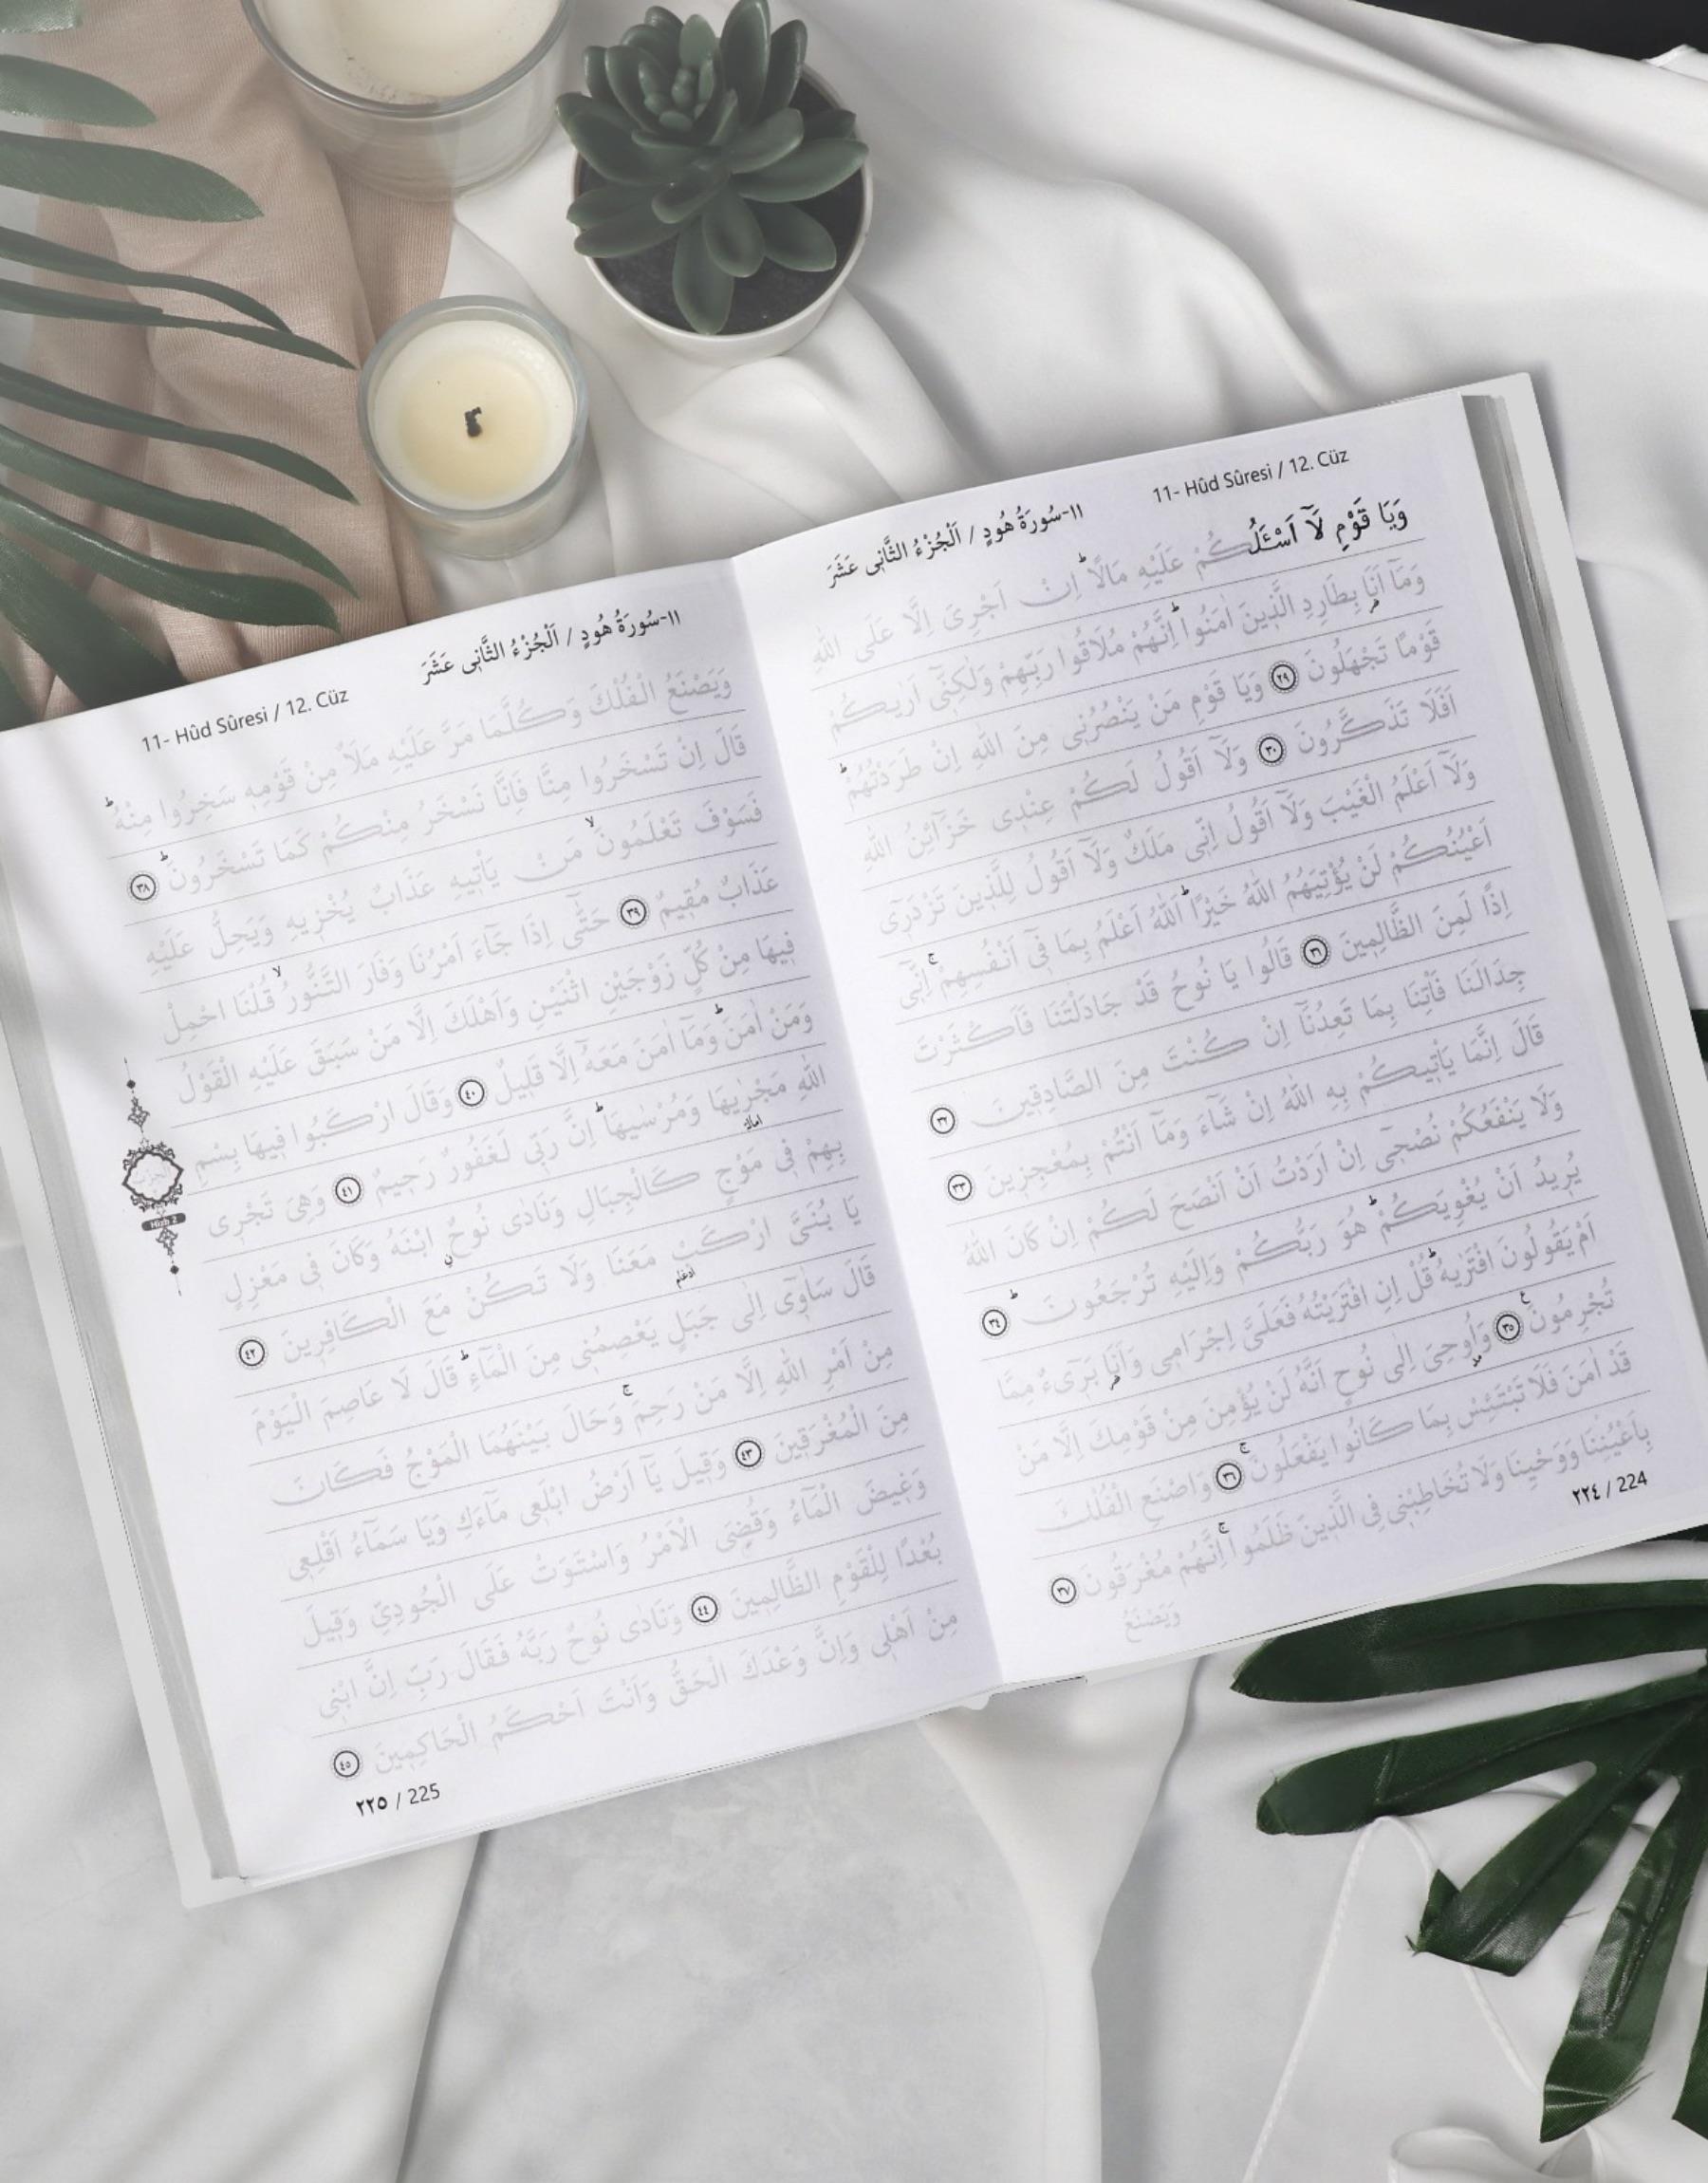 11- Hûd Sûresi / 12. Cüz
١١-سُورَةُ هُودٍ / اَلْجُزْءُ الثَّانِى عَشَرَ
وَيَا قَوْمِ لَآ اَسْـَٔلُكُمْ عَلَيْهِ مَالًاۜ اِنْ اَجْرِىَ اِلَّا عَلَى اللّٰهِ
وَمَٓا اَنَا۬ بِطَارِدِ الَّذ۪ينَ اٰمَنُواۜ اِنَّهُمْ مُلَاقُوا رَبِّهِمْ وَلٰكِنّ۪ٓى اَرٰيكُمْ
قَوْمًا تَجْهَلُونَ ﴿٢٩﴾ وَيَا قَوْمِ مَنْ يَنْصُرُن۪ى مِنَ اللّٰهِ اِنْ طَرَدْتُهُمْۜ
اَفَلَا تَذَكَّرُونَ ﴿٣٠﴾ وَلَآ اَقُولُ لَكُمْ عِنْد۪ى خَزَٓائِنُ اللّٰهِ
وَلَآ اَعْلَمُ الْغَيْبَ وَلَآ اَقُولُ اِنّ۪ى مَلَكٌ وَلَآ اَقُولُ لِلَّذ۪ينَ تَزْدَر۪ٓى
اَعْيُنُكُمْ لَنْ يُؤْتِيَهُمُ اللّٰهُ خَيْرًاۜ اَللّٰهُ اَعْلَمُ بِمَا ف۪ٓى اَنْفُسِهِمْۚ اِنّ۪ٓى
اِذًا لَمِنَ الظَّالِم۪ينَ ﴿٣١﴾ قَالُوا يَا نُوحُ قَدْ جَادَلْتَنَا فَاَكْثَرْتَ
جِدَالَنَا فَأْتِنَا بِمَا تَعِدُنَٓا اِنْ كُنْتَ مِنَ الصَّادِق۪ينَ ﴿٣٢﴾
قَالَ اِنَّمَا يَأْت۪يكُمْ بِهِ اللّٰهُ اِنْ شَٓاءَ وَمَٓا اَنْتُمْ بِمُعْجِز۪ينَ ﴿٣٣﴾
وَلَا يَنْفَعُكُمْ نُصْح۪ٓى اِنْ اَرَدْتُ اَنْ اَنْصَحَ لَكُمْ اِنْ كَانَ اللّٰهُ
يُر۪يدُ اَنْ يُغْوِيَكُمْۜ هُوَ رَبُّكُمْ وَاِلَيْهِ تُرْجَعُونَۜ ﴿٣٤﴾
اَمْ يَقُولُونَ افْتَرٰيهُۜ قُلْ اِنِ افْتَرَيْتُهُ فَعَلَىَّ اِجْرَام۪ى وَاَنَا۬ بَر۪ٓىءٌ مِمَّا
تُجْرِمُونَ۟ ﴿٣٥﴾ وَاُو۫حِىَ اِلٰى نُوحٍ اَنَّهُ لَنْ يُؤْمِنَ مِنْ قَوْمِكَ اِلَّا مَنْ
قَدْ اٰمَنَ فَلَا تَبْتَئِسْ بِمَا كَانُوا يَفْعَلُونَۚ ﴿٣٦﴾ وَاصْنَعِ الْفُلْكَ
بِاَعْيُنِنَا وَوَحْيِنَا وَلَا تُخَاطِبْن۪ى فِى الَّذ۪ينَ ظَلَمُواۚ اِنَّهُمْ مُغْرَقُونَ ﴿٣٧﴾
وَيَصْنَعُ
٢٢٤ / 224
11- Hûd Sûresi / 12. Cüz
١١-سُورَةُ هُودٍ / اَلْجُزْءُ الثَّانِى عَشَرَ
وَيَصْنَعُ الْفُلْكَ وَكُلَّمَا مَرَّ عَلَيْهِ مَلَأٌ مِنْ قَوْمِه۪ سَخِرُوا مِنْهُۜ
قَالَ اِنْ تَسْخَرُوا مِنَّا فَاِنَّا نَسْخَرُ مِنْكُمْ كَمَا تَسْخَرُونَۜ ﴿٣٨﴾
فَسَوْفَ تَعْلَمُونَۙ مَنْ يَأْت۪يهِ عَذَابٌ يُخْز۪يهِ وَيَحِلُّ عَلَيْهِ
عَذَابٌ مُق۪يمٌ ﴿٣٩﴾ حَتّٰٓى اِذَا جَٓاءَ اَمْرُنَا وَفَارَ التَّنُّورُۙ قُلْنَا احْمِلْ
ف۪يهَا مِنْ كُلٍّ زَوْجَيْنِ اثْنَيْنِ وَاَهْلَكَ اِلَّا مَنْ سَبَقَ عَلَيْهِ الْقَوْلُ
وَمَنْ اٰمَنَۜ وَمَٓا اٰمَنَ مَعَهُٓ اِلَّا قَل۪يلٌ ﴿٤٠﴾ وَقَالَ ارْكَبُوا ف۪يهَا بِسْمِ
اللّٰهِ مَجْرٰۭيهَا وَمُرْسٰيهَاۜ اِنَّ رَبّ۪ى لَغَفُورٌ رَح۪يمٌ ﴿٤١﴾ وَهِىَ تَجْر۪ى
اماله
بِهِمْ ف۪ى مَوْجٍ كَالْجِبَالِ وَنَادٰى نُوحٌۨ ابْنَهُ وَكَانَ ف۪ى مَعْزِلٍ
يَا بُنَىَّ ارْكَبْ مَعَنَا وَلَا تَكُنْ مَعَ الْكَافِر۪ينَ ﴿٤٢﴾
ادغام
قَالَ سَاٰو۪ٓى اِلٰى جَبَلٍ يَعْصِمُن۪ى مِنَ الْمَٓاءِۜ قَالَ لَا عَاصِمَ الْيَوْمَ
مِنْ اَمْرِ اللّٰهِ اِلَّا مَنْ رَحِمَۚ وَحَالَ بَيْنَهُمَا الْمَوْجُ فَكَانَ
مِنَ الْمُغْرَق۪ينَ ﴿٤٣﴾ وَق۪يلَ يَٓا اَرْضُ ابْلَع۪ى مَٓاءَكِ وَيَا سَمَٓاءُ اَقْلِع۪ى
وَغ۪يضَ الْمَٓاءُ وَقُضِىَ الْاَمْرُ وَاسْتَوَتْ عَلَى الْجُودِىِّ وَق۪يلَ
بُعْدًا لِلْقَوْمِ الظَّالِم۪ينَ ﴿٤٤﴾ وَنَادٰى نُوحٌ رَبَّهُ فَقَالَ رَبِّ اِنَّ ابْن۪ى
مِنْ اَهْل۪ى وَاِنَّ وَعْدَكَ الْحَقُّ وَاَنْتَ اَحْكَمُ الْحَاكِم۪ينَ ﴿٤٥﴾
Hizb 2
٢٢٥ / 225